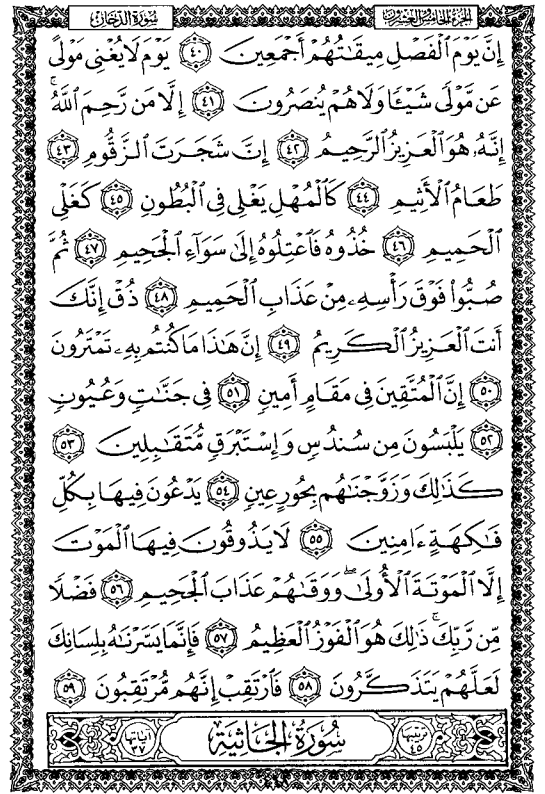 الجزء الخامس والعشرون سورة الدخان
إِنَّ يَوْمَ ٱلْفَصْلِ مِيقَٰتُهُمْ أَجْمَعِينَ ٤٠ يَوْمَ لَا يُغْنِى مَوْلًى
عَن مَّوْلًى شَيْـًٔا وَلَا هُمْ يُنصَرُونَ ٤١ إِلَّا مَن رَّحِمَ ٱللَّهُ ۚ
إِنَّهُۥ هُوَ ٱلْعَزِيزُ ٱلرَّحِيمُ ٤٢ إِنَّ شَجَرَتَ ٱلزَّقُّومِ ٤٣
طَعَامُ ٱلْأَثِيمِ ٤٤ كَٱلْمُهْلِ يَغْلِى فِى ٱلْبُطُونِ ٤٥ كَغَلْىِ
ٱلْحَمِيمِ ٤٦ خُذُوهُ فَٱعْتِلُوهُ إِلَىٰ سَوَآءِ ٱلْجَحِيمِ ٤٧ ثُمَّ
صُبُّوا۟ فَوْقَ رَأْسِهِۦ مِنْ عَذَابِ ٱلْحَمِيمِ ٤٨ ذُقْ إِنَّكَ
أَنتَ ٱلْعَزِيزُ ٱلْكَرِيمُ ٤٩ إِنَّ هَٰذَا مَا كُنتُم بِهِۦ تَمْتَرُونَ
٥٠ إِنَّ ٱلْمُتَّقِينَ فِى مَقَامٍ أَمِينٍ ٥١ فِى جَنَّٰتٍ وَعُيُونٍ
٥٢ يَلْبَسُونَ مِن سُندُسٍ وَإِسْتَبْرَقٍ مُّتَقَٰبِلِينَ ٥٣
كَذَٰلِكَ وَزَوَّجْنَٰهُم بِحُورٍ عِينٍ ٥٤ يَدْعُونَ فِيهَا بِكُلِّ
فَٰكِهَةٍ ءَامِنِينَ ٥٥ لَا يَذُوقُونَ فِيهَا ٱلْمَوْتَ
إِلَّا ٱلْمَوْتَةَ ٱلْأُولَىٰ ۖ وَوَقَىٰهُمْ عَذَابَ ٱلْجَحِيمِ ٥٦ فَضْلًا
مِّن رَّبِّكَ ۚ ذَٰلِكَ هُوَ ٱلْفَوْزُ ٱلْعَظِيمُ ٥٧ فَإِنَّمَا يَسَّرْنَٰهُ بِلِسَانِكَ
لَعَلَّهُمْ يَتَذَكَّرُونَ ٥٨ فَٱرْتَقِبْ إِنَّهُم مُّرْتَقِبُونَ ٥٩
ترتيبها ٤٥ سُورَةُ الجَاثِيَةِ آياتها ٣٧